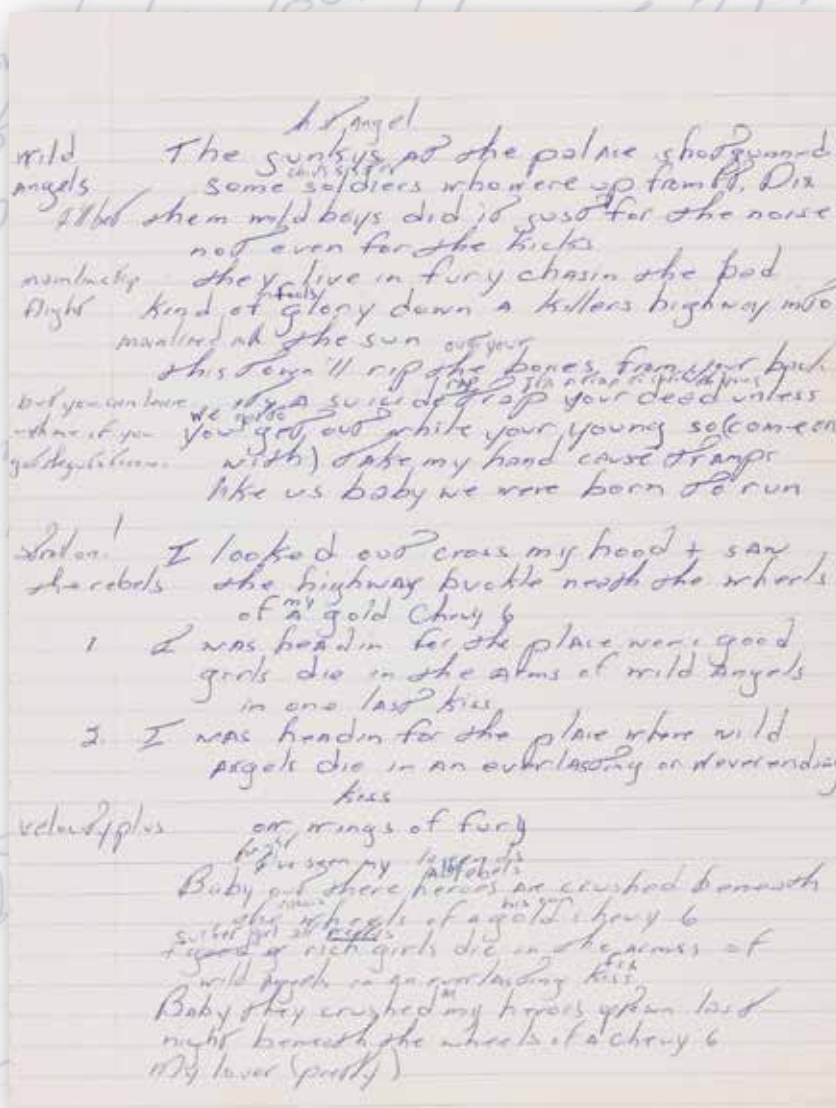 Angel
wild The gunkys at the palace shotgunned
Angels some soldiers who were up from Ft. Dix
them wild boys did it just for the noise
not even for the kicks
they live in fury chasin the bad
flight kind of glory down a killers highway into
the sun
out your
this town'll rip the bones from your back
but you can leave its a suicide trap your dead unless
we gotta
if you you get out while your young so (come on
with) take my hand cause tramps
like us baby we were born to run
I looked out cross my hood + saw
the rebels the highway buckle neath the wheels
my
of a gold Chevy 6
1 I was headin for the place were good
girls die in the arms of wild Angels
in one last kiss
2. I was headin for the place where wild
Angels die in an everlasting or neverending
kiss
velocity plus on wings of fury
I've seen my
rebels
Baby out there heroes are crushed beneath
the wheels of a gold chevy 6
+ good or rich girls die in the across of
wild Angels in an everlasting kiss
Baby they crushed my heroes last
night beneath the wheels of a chevy 6
My lover (pretty)